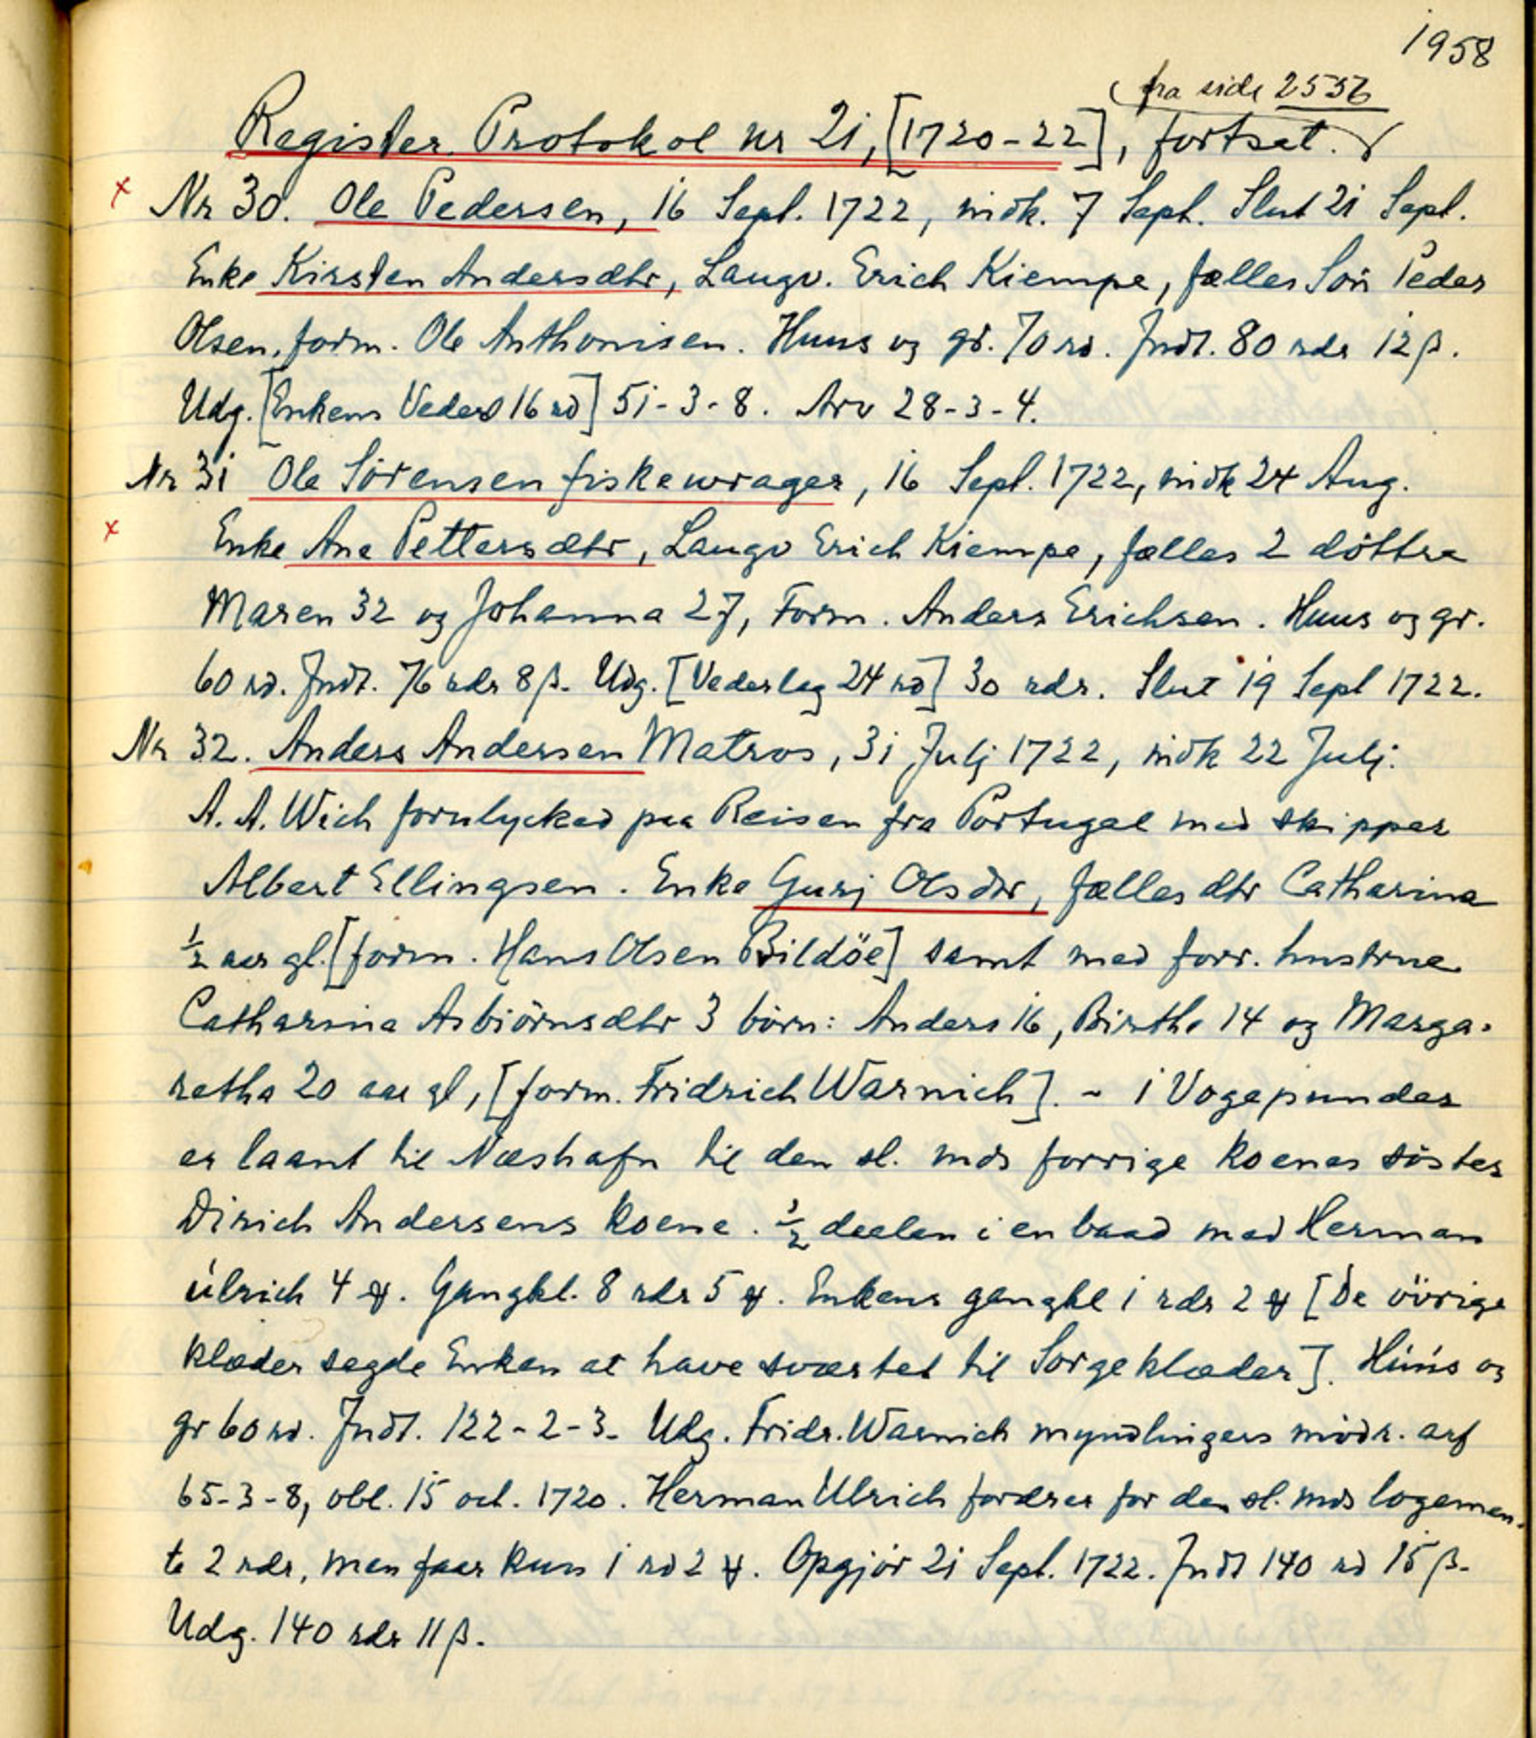 1958
(fra side 2556
Register Protokol nr 21, [1720-22], fortsat.
x Nr 30. Ole Pedersen, 16 Sept. 1722, indk. 7 Sept. Slut 21 Sept.
Enke Kirsten Andersdtr, Laugv. Erich Kiempe, fælles Søn Peder
Olsen, form. Ole Anthonisen. Huus og gr. 70 rd. Indt. 80 rdr 12 β.
Udg. [Enkens Vederl 16 rd] 51-3-8. Arv 28-3-4.
Nr 31 Ole Sörensen fiskewrager, 16 Sept. 1722, indk 24 Aug.
x Enke Ane Pettersdtr, Laugv Erich Kiempe, fælles 2 döttre
Maren 32 og Johanna 27, Form. Anders Erichsen. Huus og gr.
60 rd. Indt. 76 rdr 8 β. Udg. [Vederlag 24 rd] 30 rdr. Slut 19 Sept 1722.
Nr 32. Anders Andersen Matros, 31 Julj 1722, indk 22 Julj.
A. A. Wich forulycked paa Reisen fra Portugal med skipper
Albert Ellingsen. Enke Gurj Olsdtr, fælles dtr Catharina
½ aar gl. [form. Hans Olsen Bildöe] samt med forr. hustrue
Catharina Asbiörnsdtr 3 börn: Anders 16, Birthe 14 og Marga-
retha 20 aar gl, [form. Fridrich Warnich]. - 1 Vogepunder
er laant til Næshafn til den sl. mds forrige Koenes söster
Dirich Andersens Koene. ½ deelen i en baad med Herman
Ulrich 4 ꝟ. Gangkl. 8 rdr 5 ꝟ. Enkens gangkl 1 rdr 2 ꝟ [De övrige
klæder sagde Enken at have sværtet til Sorgeklæder]. Huus og
gr 60 rd. Indt. 122-2-3. Udg. Fridr. Warnich myndlingers mödr. arf
65-3-8, obl. 15 oct. 1720. Herman Ulrich fordrer for den sl. mds logemen-
te 2 rdr, men faar kun 1 rd 2 ꝟ. Opgjör 21 Sept. 1722. Indt 140 rd 15 β.
Udg. 140 rdr 11 β.